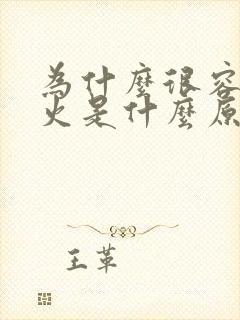 為什麼很容
火是什麼原
王革